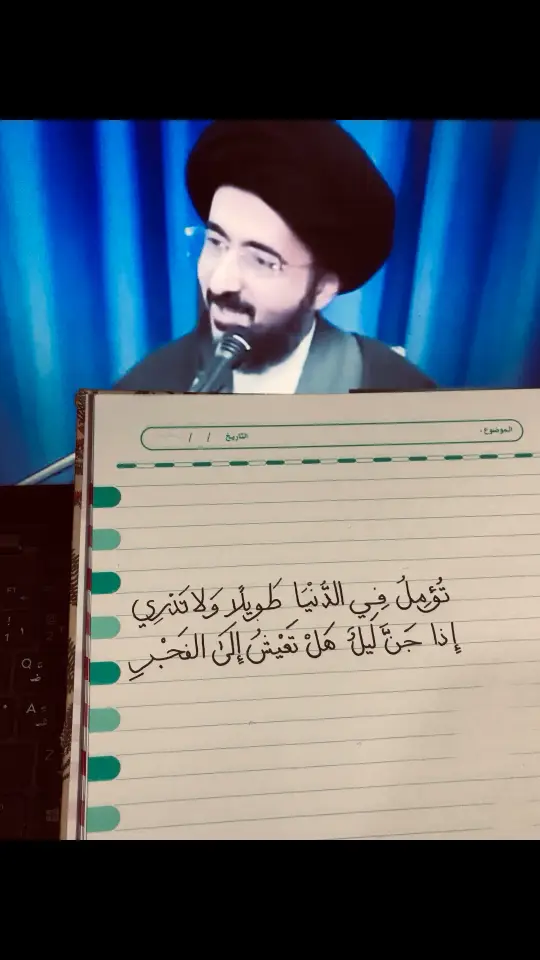 الموضوع:
التاريخ / /
تُؤمِلُ فِي الدُّنْيَا طَويلًا وَلا تَدْرِي
إِذا جَنَّ لَيلٌ هَلْ تَعْيشُ إِلَىٰ الفَجْرِ
Q
A